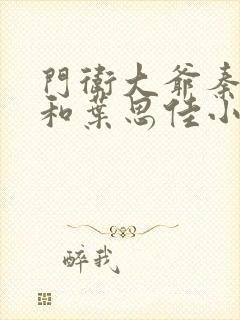 門衛大爺秦
和葉思佳小
醉我